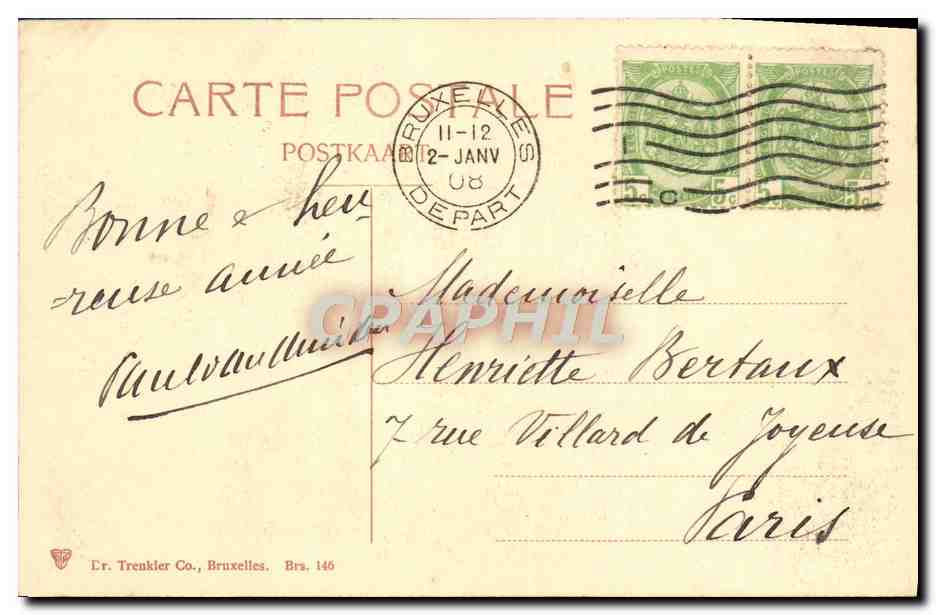 CARTE POSTALE
POSTKAART
BRUXELLES
11-12
2-JANV
08
DEPART
POSTES
POSTES
5c 5c
5c 5c
C
Bonne & heu
=reuse année
Mademoiselle
Henriette Bertaux
7 rue Villard de Joyeuse
Paris
CPAPHIL
Dr. Trenkler Co., Bruxelles. Brs. 146